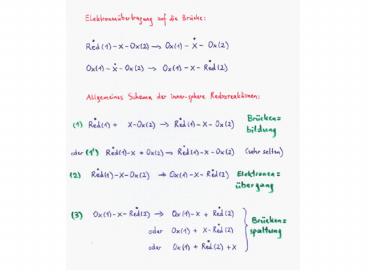 Elektronenübertragung auf die Brücke:
Ṙed(1)-X-Ox(2) → Ox(1)-Ẋ-Ox(2)
Ox(1)-Ẋ-Ox(2) → Ox(1)-X-Ṙed(2)
Allgemeines Schema der inner-sphere Redoxreaktionen:
(1) Ṙed(1) + X-Ox(2) → Ṙed(1)-X-Ox(2) Brücken=
bildung
oder (1') Ṙed(1)-X + Ox(2) → Ṙed(1)-X-Ox(2) (sehr selten)
(2) Ṙed(1)-X-Ox(2) → Ox(1)-X-Ṙed(2) Elektronen=
übergang
(3) Ox(1)-X-Ṙed(2) → Ox(1)-X + Ṙed(2)
oder Ox(1) + X-Ṙed(2) Brücken=
spaltung
oder Ox(1) + Ṙed(2) + X